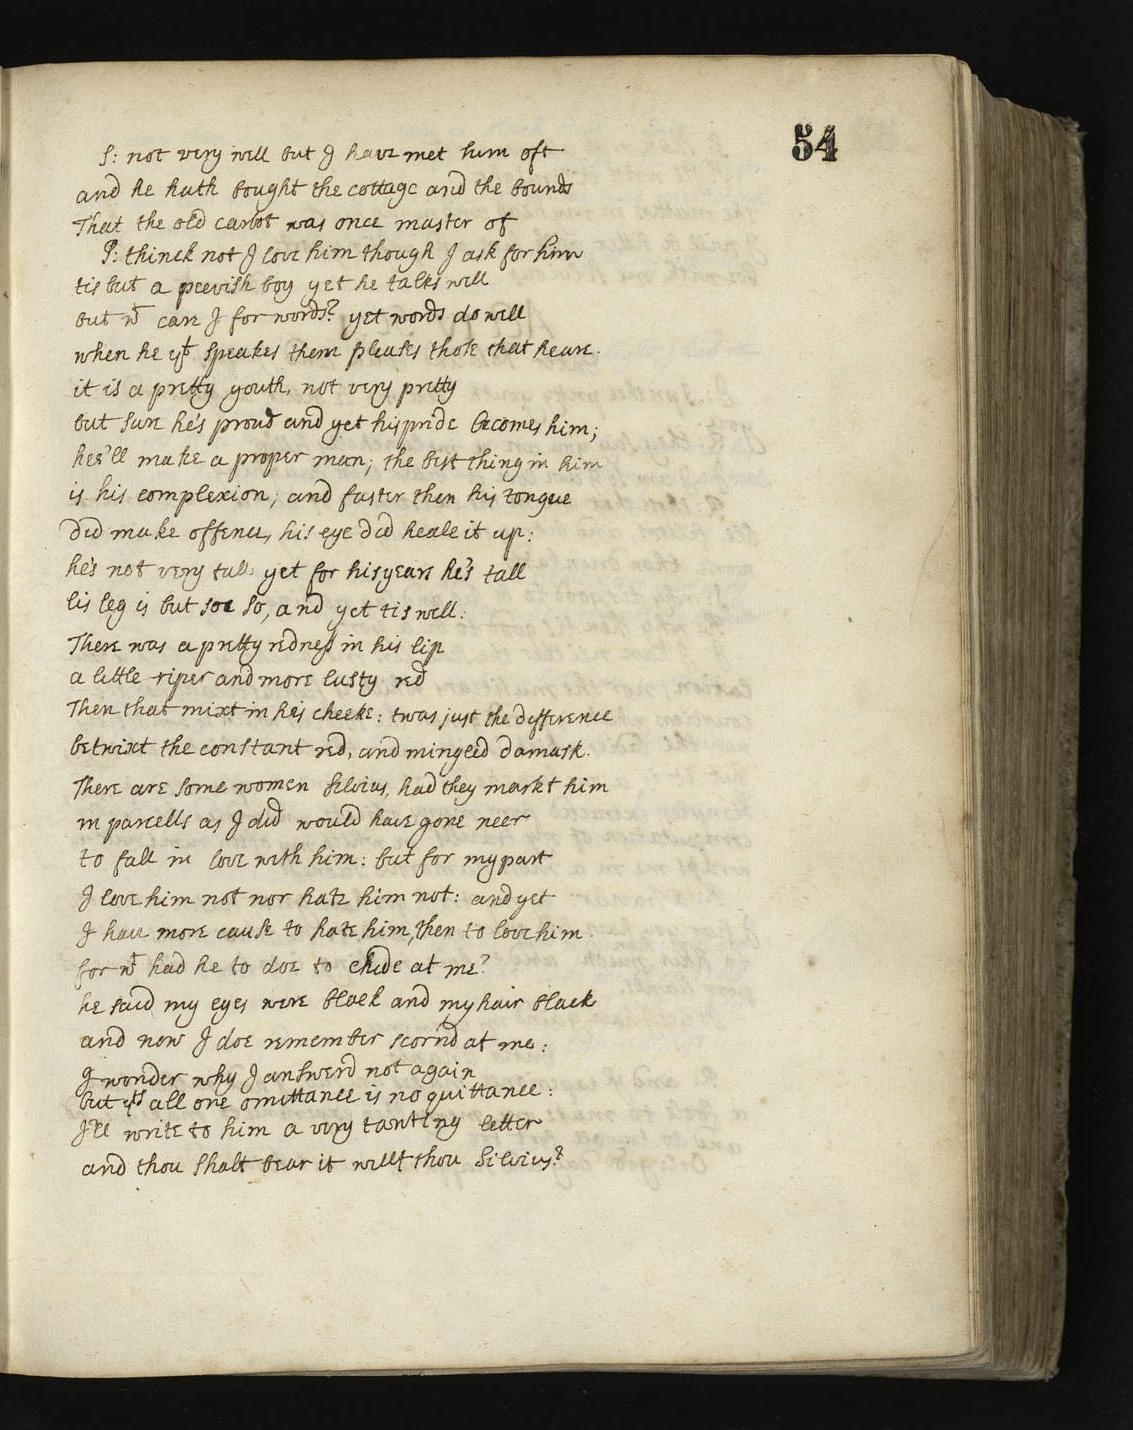 54
S: not very well but I have met him oft
and he hath bought the cottage and the bounds
That the old carlot was once master of
P: thinck not I love him though I ask for him
tis but a peevish boy yet he talks well
but wt care I for words? yet words do well
when he yt speakes them pleases those that heare.
it is a pretty youth, not very pretty
but sure he's proud and yet his pride becomes him;
hee'll make a proper man; the best thing in him
is his complexion; and faster then his tongue
Did make offence, his eye did heale it up:
he's not very tall, yet for his years he's tall
his leg is but soe so, and yet tis well:
There was a pretty redness in his lip
a little riper and more lusty red
Then that mixt in his cheeke: twas just the difference
betwixt the constant red, and mingled damask.
There are some women Silvius, had they markt him
in parcells as I did would have gone neer
to fall in love with him: but for my part
I love him not nor hate him not: and yet
I have more cause to hate him, then to love him.
for wt had he to doe to chide at me?
he said my eyes were black and my hair black
and now I doe remember scornd at me:
I wonder why I answerd not again
but yts all one omittance is no quittance:
I'le write to him a very tanting letter
and thou shalt bear it willt thou Silvius?